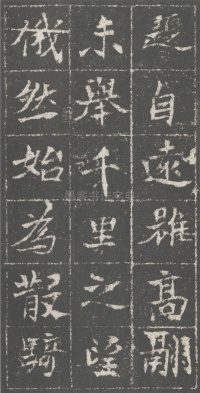 自遠雖高翮
未舉千里之望
俄然始為散騎